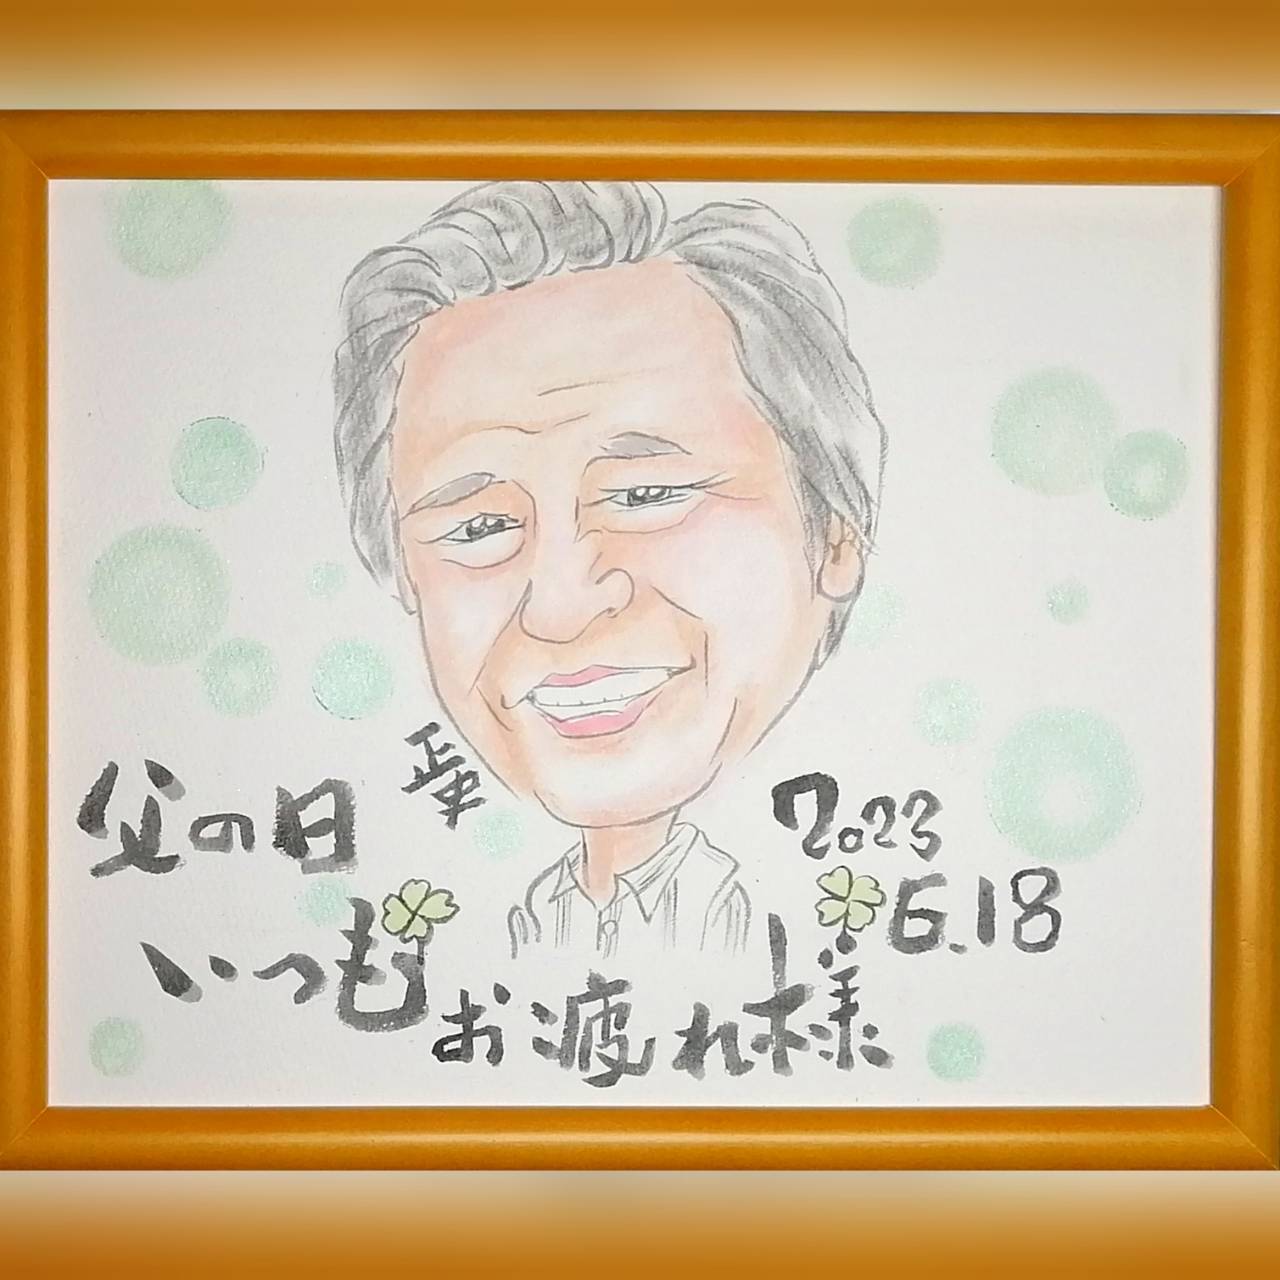 父の日
2023
6.18
いつも
お疲れ様